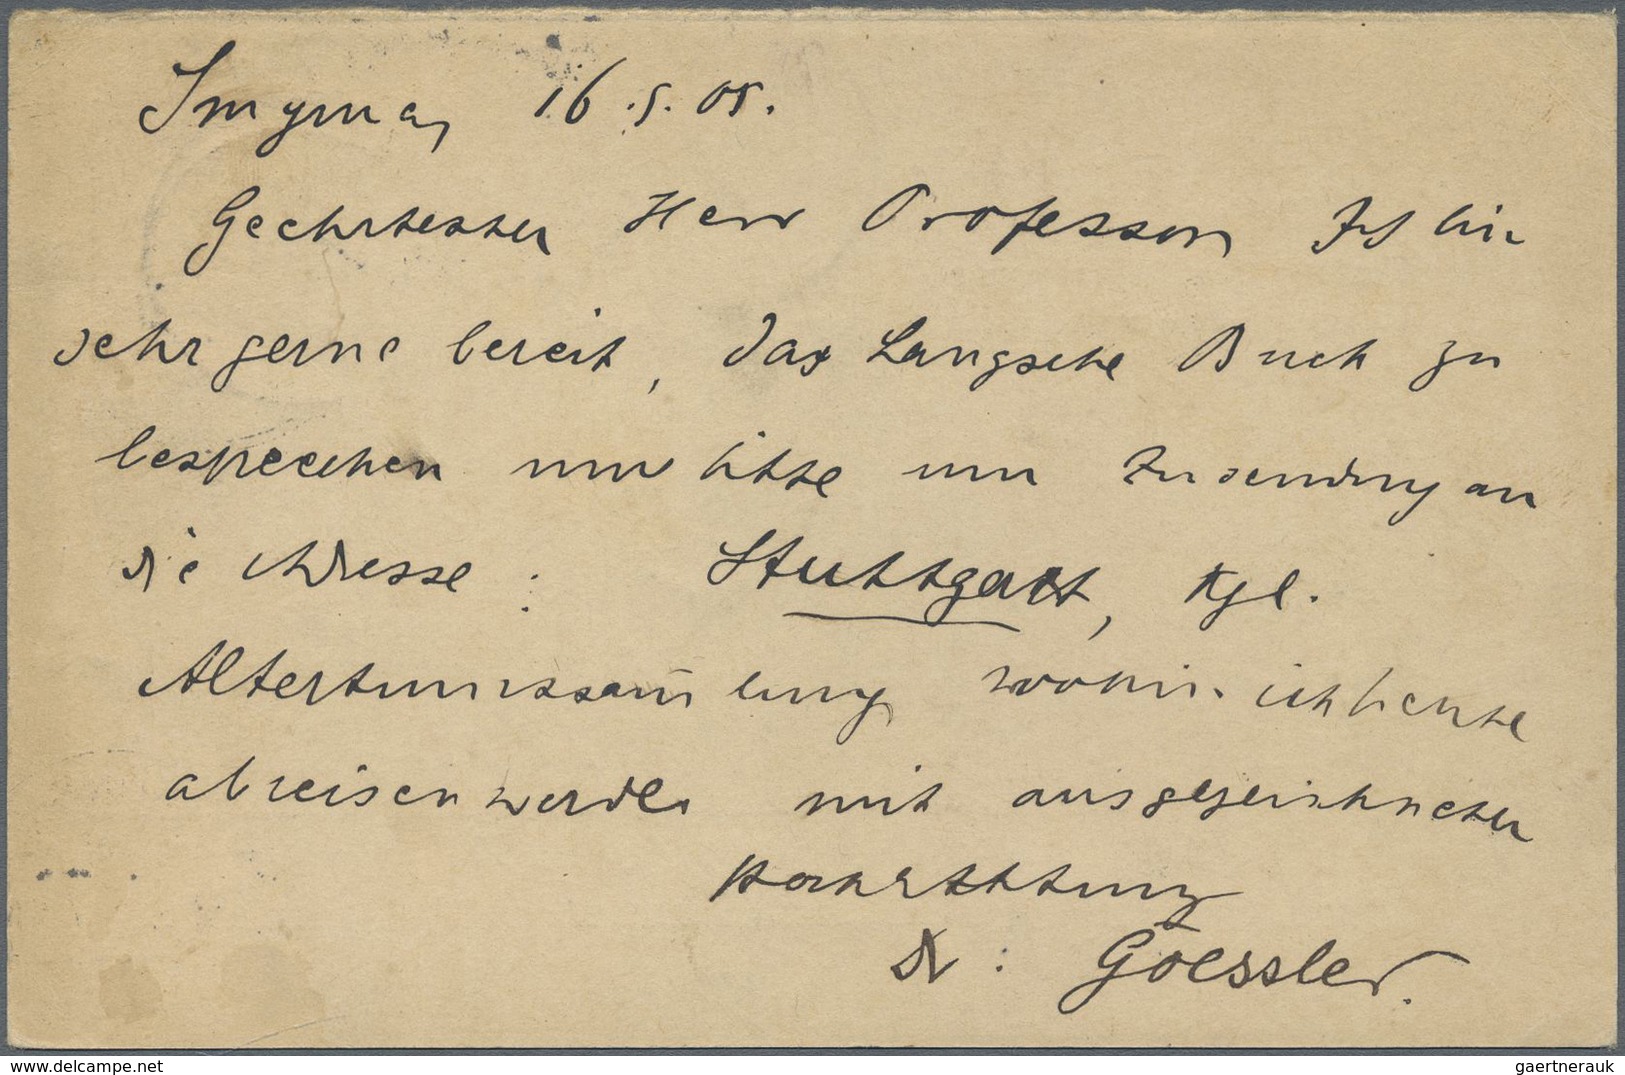 Smyrna, 16.5.05.
Geehrtester Herr Professor Ich bin
sehr gerne bereit, das Langsche Buch zu
besprechen und bitte um Zusendung an
die Adresse: Stuttgart, Kgl.
Altertumssam̄lung wohin ich heute
abreisen werde. mit ausgezeichneter
Hochachtung
Dr: Goessler.
gaertnerauk